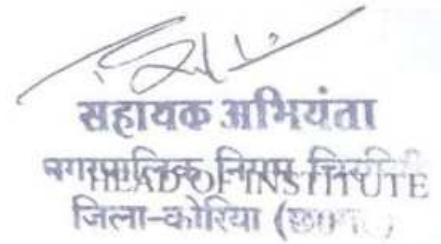 सहायक अभियंता
नगरपालिक निगम
HEAD OF INSTITUTE
जिला-कोरिया (छ०ग०)